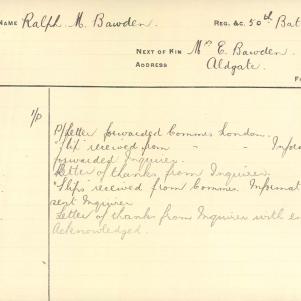 NAME Ralph M. Bawden. REG. &C. 50th Bat
NEXT OF KIN Mrs E. Bawden.
ADDRESS Aldgate.
Fo
1/P
P/Letter forwarded Commes London.
"Slip" received from " - Infor
forwarded Inquirer.
Letter of thanks from Inquirer.
"Slips received from Commes. Informat
sent Inquirer
Letter of thanks from Inquirer with en
Acknowledged.